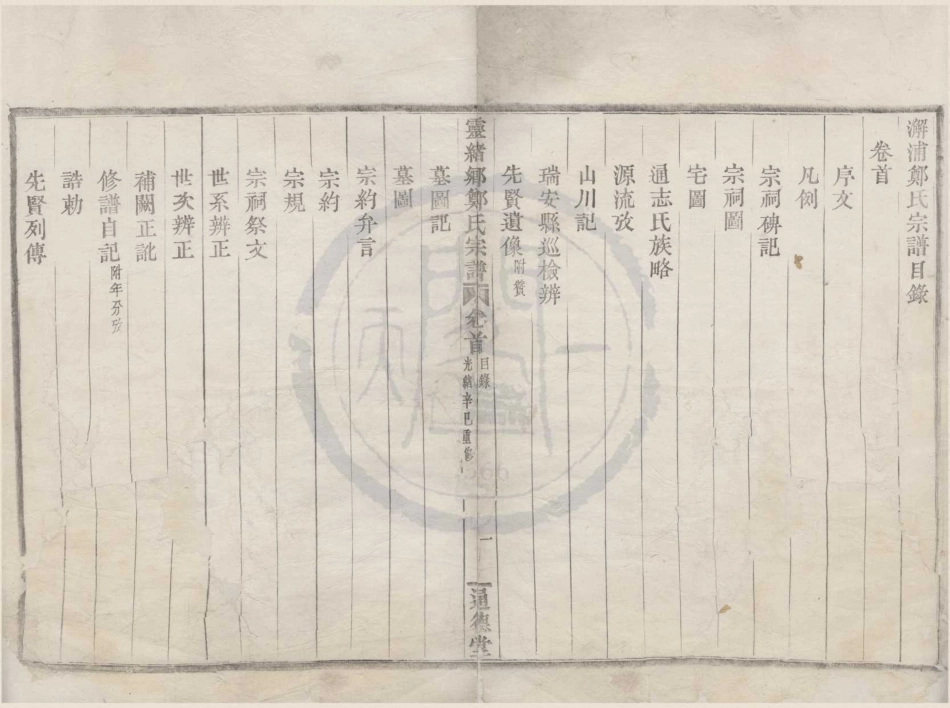 澥浦鄭氏宗譜目錄
卷首
序文
凡例
宗祠碑記
宗祠圖
宅圖
通志氏族略
源流攷
山川記
瑞安縣巡檢辨
先賢遺像附贊
靈緒鄉鄭氏宗譜 卷首 目錄 光緒辛巳重修 一 通德堂
墓圖記
墓圖
宗約弁言
宗約
宗規
宗祠祭文
世系辨正
世次辨正
補闕正訛
修譜自記附年分攷
誥勅
先賢列傳